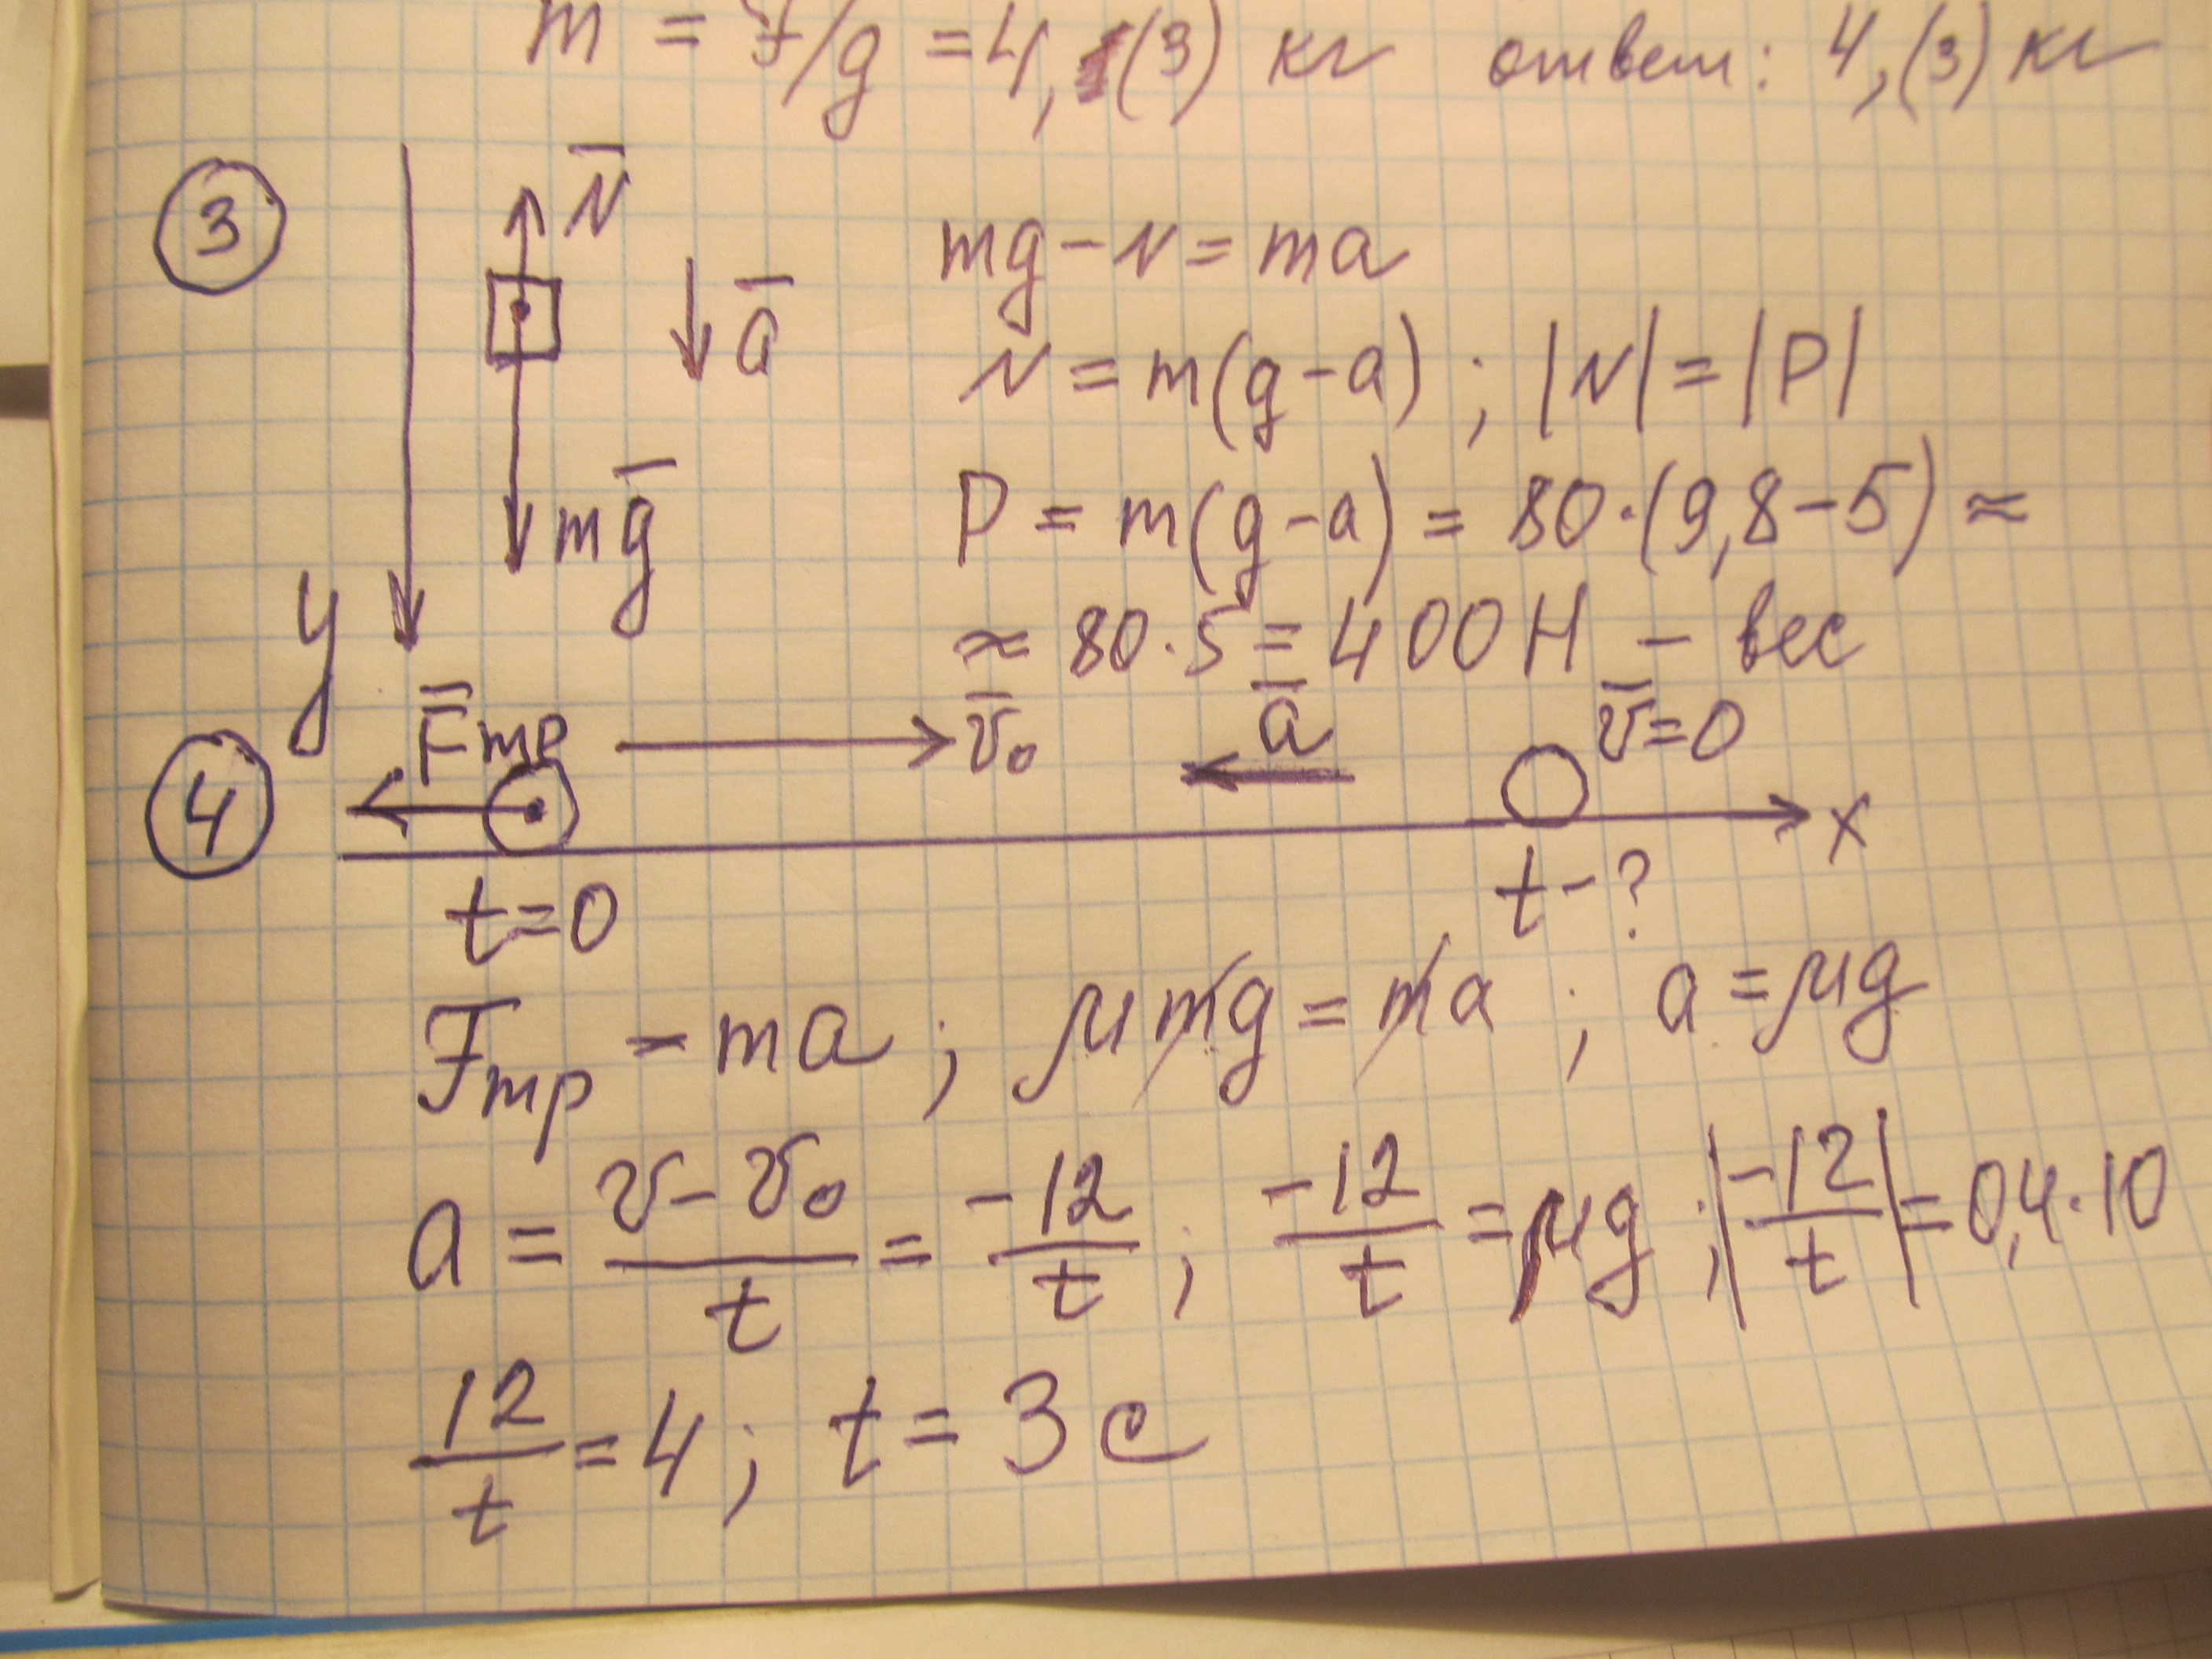 m = F/g = 4,(3) кг ответ: 4,(3) кг
3
N̅
a̅
mg̅
y
mg - N = ma
N = m(g - a) ; |N| = |P|
P = m(g - a) = 80·(9,8 - 5) ≈
≈ 80·5 = 400 Н - вес
4
F̅тр v̅₀ a̅ v̅=0
x
t=0 t-?
Fтр = ma ; μmg = ma ; a = μg
a = (v - v₀)/t = -12/t ; -12/t = μg ; |-12/t| = 0,4·10
12/t = 4 ; t = 3 с